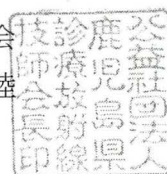 会
公益社団法人
鹿児島県
診療放射線
技師会長印